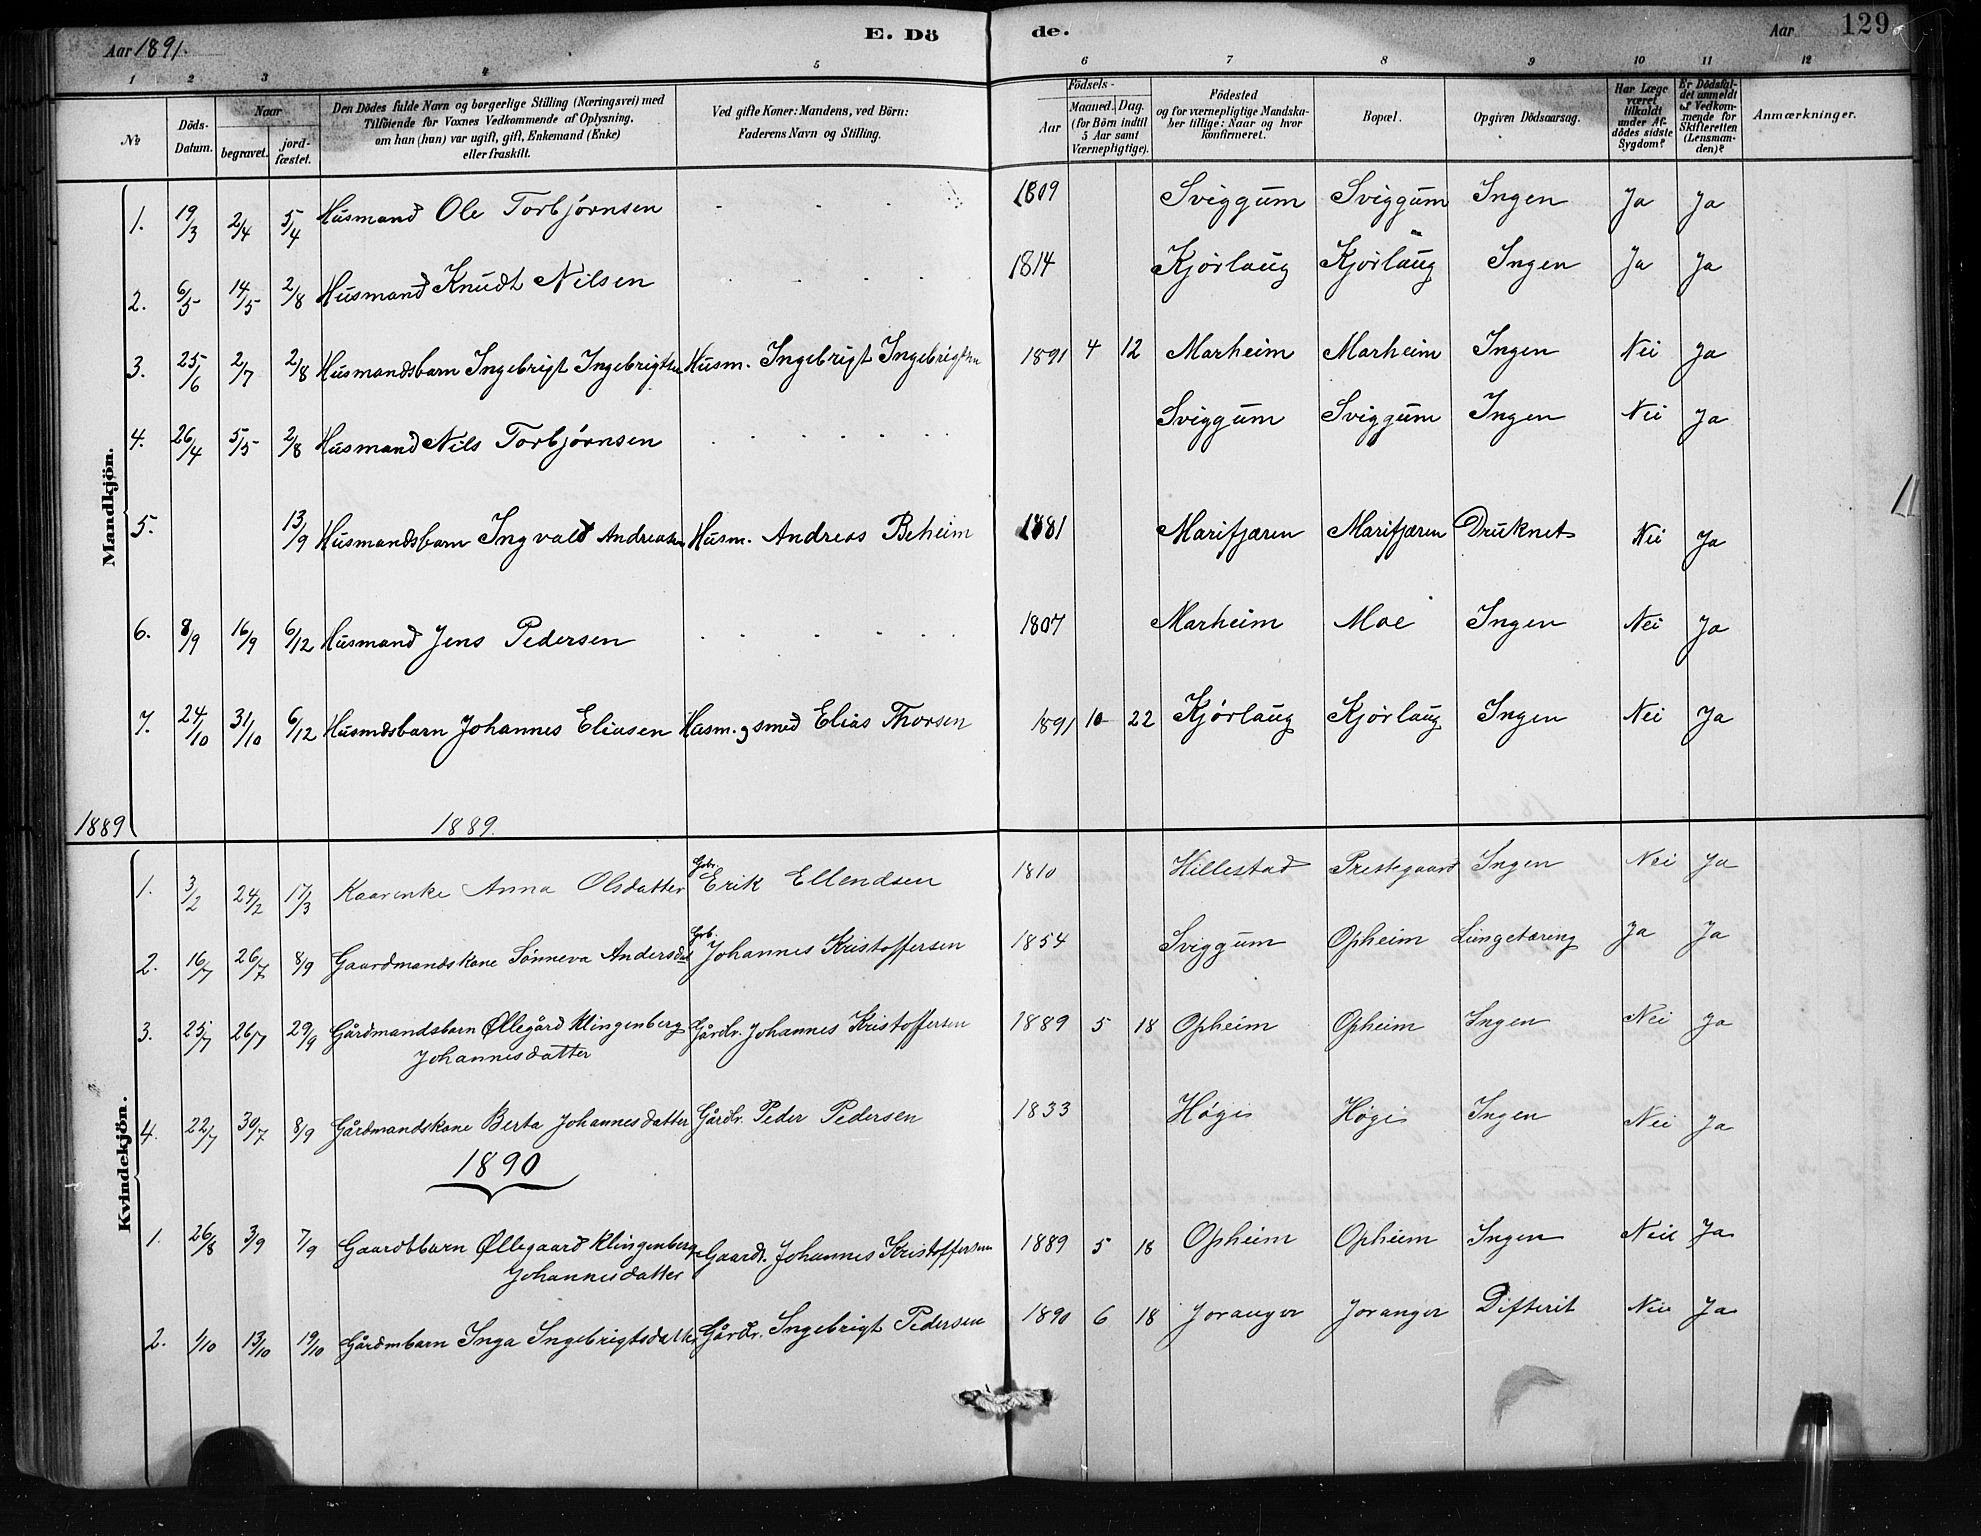 Aar 1891. E. Dö de. Aar 129
1 2 3 4 5 6 7 8 9 10 11 12
No
Döds-Datum.
Naar
begravet.
jordfæstet.
Den Dödes fulde Navn og borgerlige Stilling (Næringsvei) med
Tilföiende for Voxnes Vedkommende af Oplysning,
om han (hun) var ugift, gift, Enkemand (Enke)
eller fraskilt.
Ved gifte Koner: Mandens, ved Börn:
Faderens Navn og Stilling.
Födsels-
Aar
Maaned. Dag.
(for Börn indtil
5 Aar samt
Værnepligtige).
Födested
og for værnepligtige Mandska-
ber tillige: Naar og hvor
konfirmeret.
Bopæl.
Opgiven Dödsaarsag.
Har Læge
været
tilkaldt
under Af-
dödes sidste
Sygdom?
Er Dödsfal-
det anmeldt
af Vedkom-
mende for
Skifteretten
(Lensman-
den)?
Anmærkninger.
Mandkjön.
1. 19/3 2/4 5/4 Husmand Ole Torbjørnsen 1809 Sviggum Sviggum Ingen Ja Ja
2. 6/5 14/5 2/8 Husmand Knudt Nilsen 1814 Kjørlaug Kjørlaug Ingen Ja Ja
3. 25/6 2/7 2/8 Husmandsbarn Ingebrigt Ingebrigtsen Husm. Ingebrigt Ingebrigtsen 1891 4 12 Marheim Marheim Ingen Nei Ja
4. 26/4 5/5 2/8 Husmand Nils Torbjørnsen Sviggum Sviggum Ingen Nei Ja
5. 13/9 Husmandsbarn Ingvald Andreasen Husm. Andreas Beheim 1881 Marifjæren Marifjæren Druknet Nei Ja
6. 8/9 16/9 6/12 Husmand Jens Pedersen 1807 Marheim Moe Ingen Nei Ja
7. 24/10 31/10 6/12 Husmdsbarn Johannes Eliasen Husm. og smed Elias Thorsen 1891 10 22 Kjørlaug Kjørlaug Ingen Nei Ja
1889 1889.
Kvindekjön.
1. 3/2 24/2 17/3 Kaarenke Anna Olsdatter Gbr. Erik Ellendsen 1810 Hillestad Prestegaard Ingen Nei Ja
2. 16/7 26/7 8/9 Gaardmandskone Sønneva Andersdat Grb. Johannes Kristoffersen 1854 Sviggum Opheim Lungetæring Ja Ja
3. 25/7 26/7 29/9 Gårdmandsbarn Øllegård Klingenberg Gårdbr. Johannes Kristoffersen 1889 5 18 Opheim Opheim Ingen Nei Ja
Johannesdatter
4. 22/7 30/7 8/9 Gårdmandskone Berta Johannesdatter Gårdbr. Peder Pedersen 1833 Høgi Høgi Ingen Nei Ja
1890
1. 26/8 3/9 7/9 Gaardbbarn Øllegaard Klingenberg Gaardb. Johannes Kristoffersen 1889 5 18 Opheim Opheim Ingen Nei Ja
Johannesdatter
2. 1/10 13/10 19/10 Gårdmbarn Inga Ingebrigtsdatter Gårdbr. Ingebrigt Pedersen 1890 6 18 Joranger Joranger Difterit Nei Ja